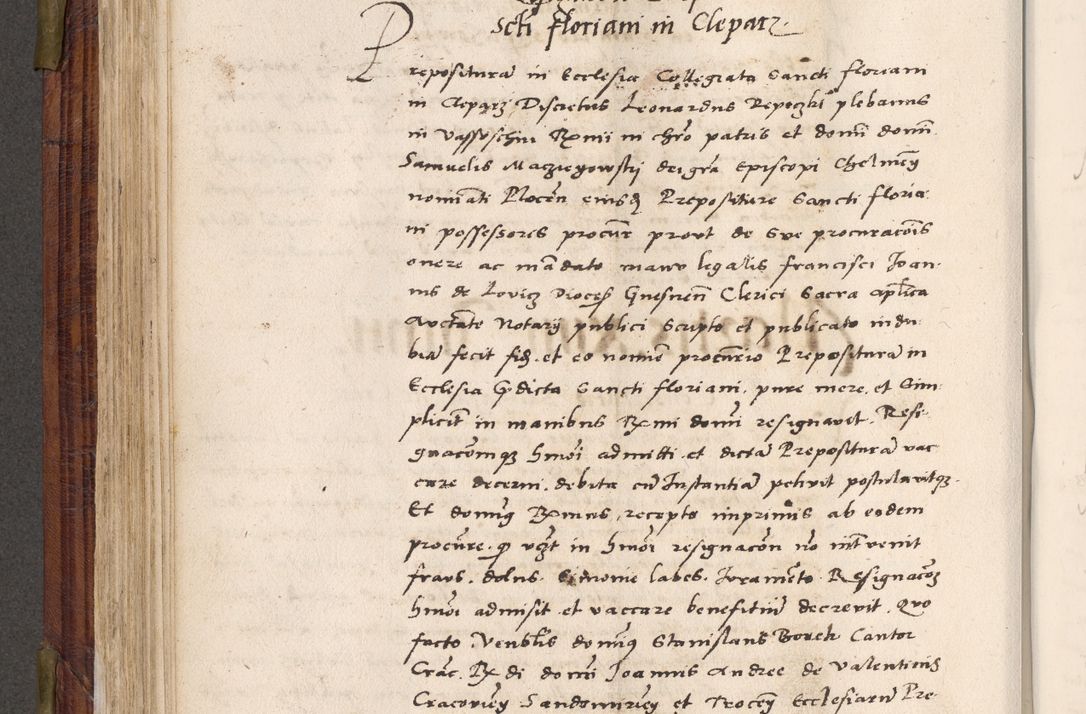 Scti Floriani in Clepar
Prepositura in Ecclesia Collegiata Sancti Floriani
in Cleparz Discretus Leonardus Repoczki plebanus
in Rxmi in chro patris et domi domi
Samuelis Macziegowskij dei gra Episcopi Chelmen
nominati Plocen eiusq Prepositure Sancti Floria
ni possessores procur prout de sue procuracois
onere ac mandato manu legalis Francisci Joan
nis de Lovicz Dioces Gnesnen Clerici Sacra aplica
Auctate Notarij publici Scripto et publicato indu
bia fecit fid. et eo nomie procurio Prepositura in
Ecclesia pdicta Sancti Floriani. pure mere. et Sim
plicit in manibus Rxmi domi resignavit. Resi
gnacomqz hmoi admitti. et dicta Prepositura vac
care decerni. debita cu Instantia petivit postulavitqz.
Et domiq Rxmus, recepto inprimis ab eodem
procure. q in hmoi resignacon no intvenit
fraus. dolus. Simonie labes. Iuramento. Resignacoz
hmoi admisit et vaccare benefitiu decrevit. Quo
facto. Venblis domiq Stanislaus Borek Cantor
Crac. Rx di domi Joannis Andree de Valentinis
Cracovien Sandomirien et Trocen Ecclesiaru Pre